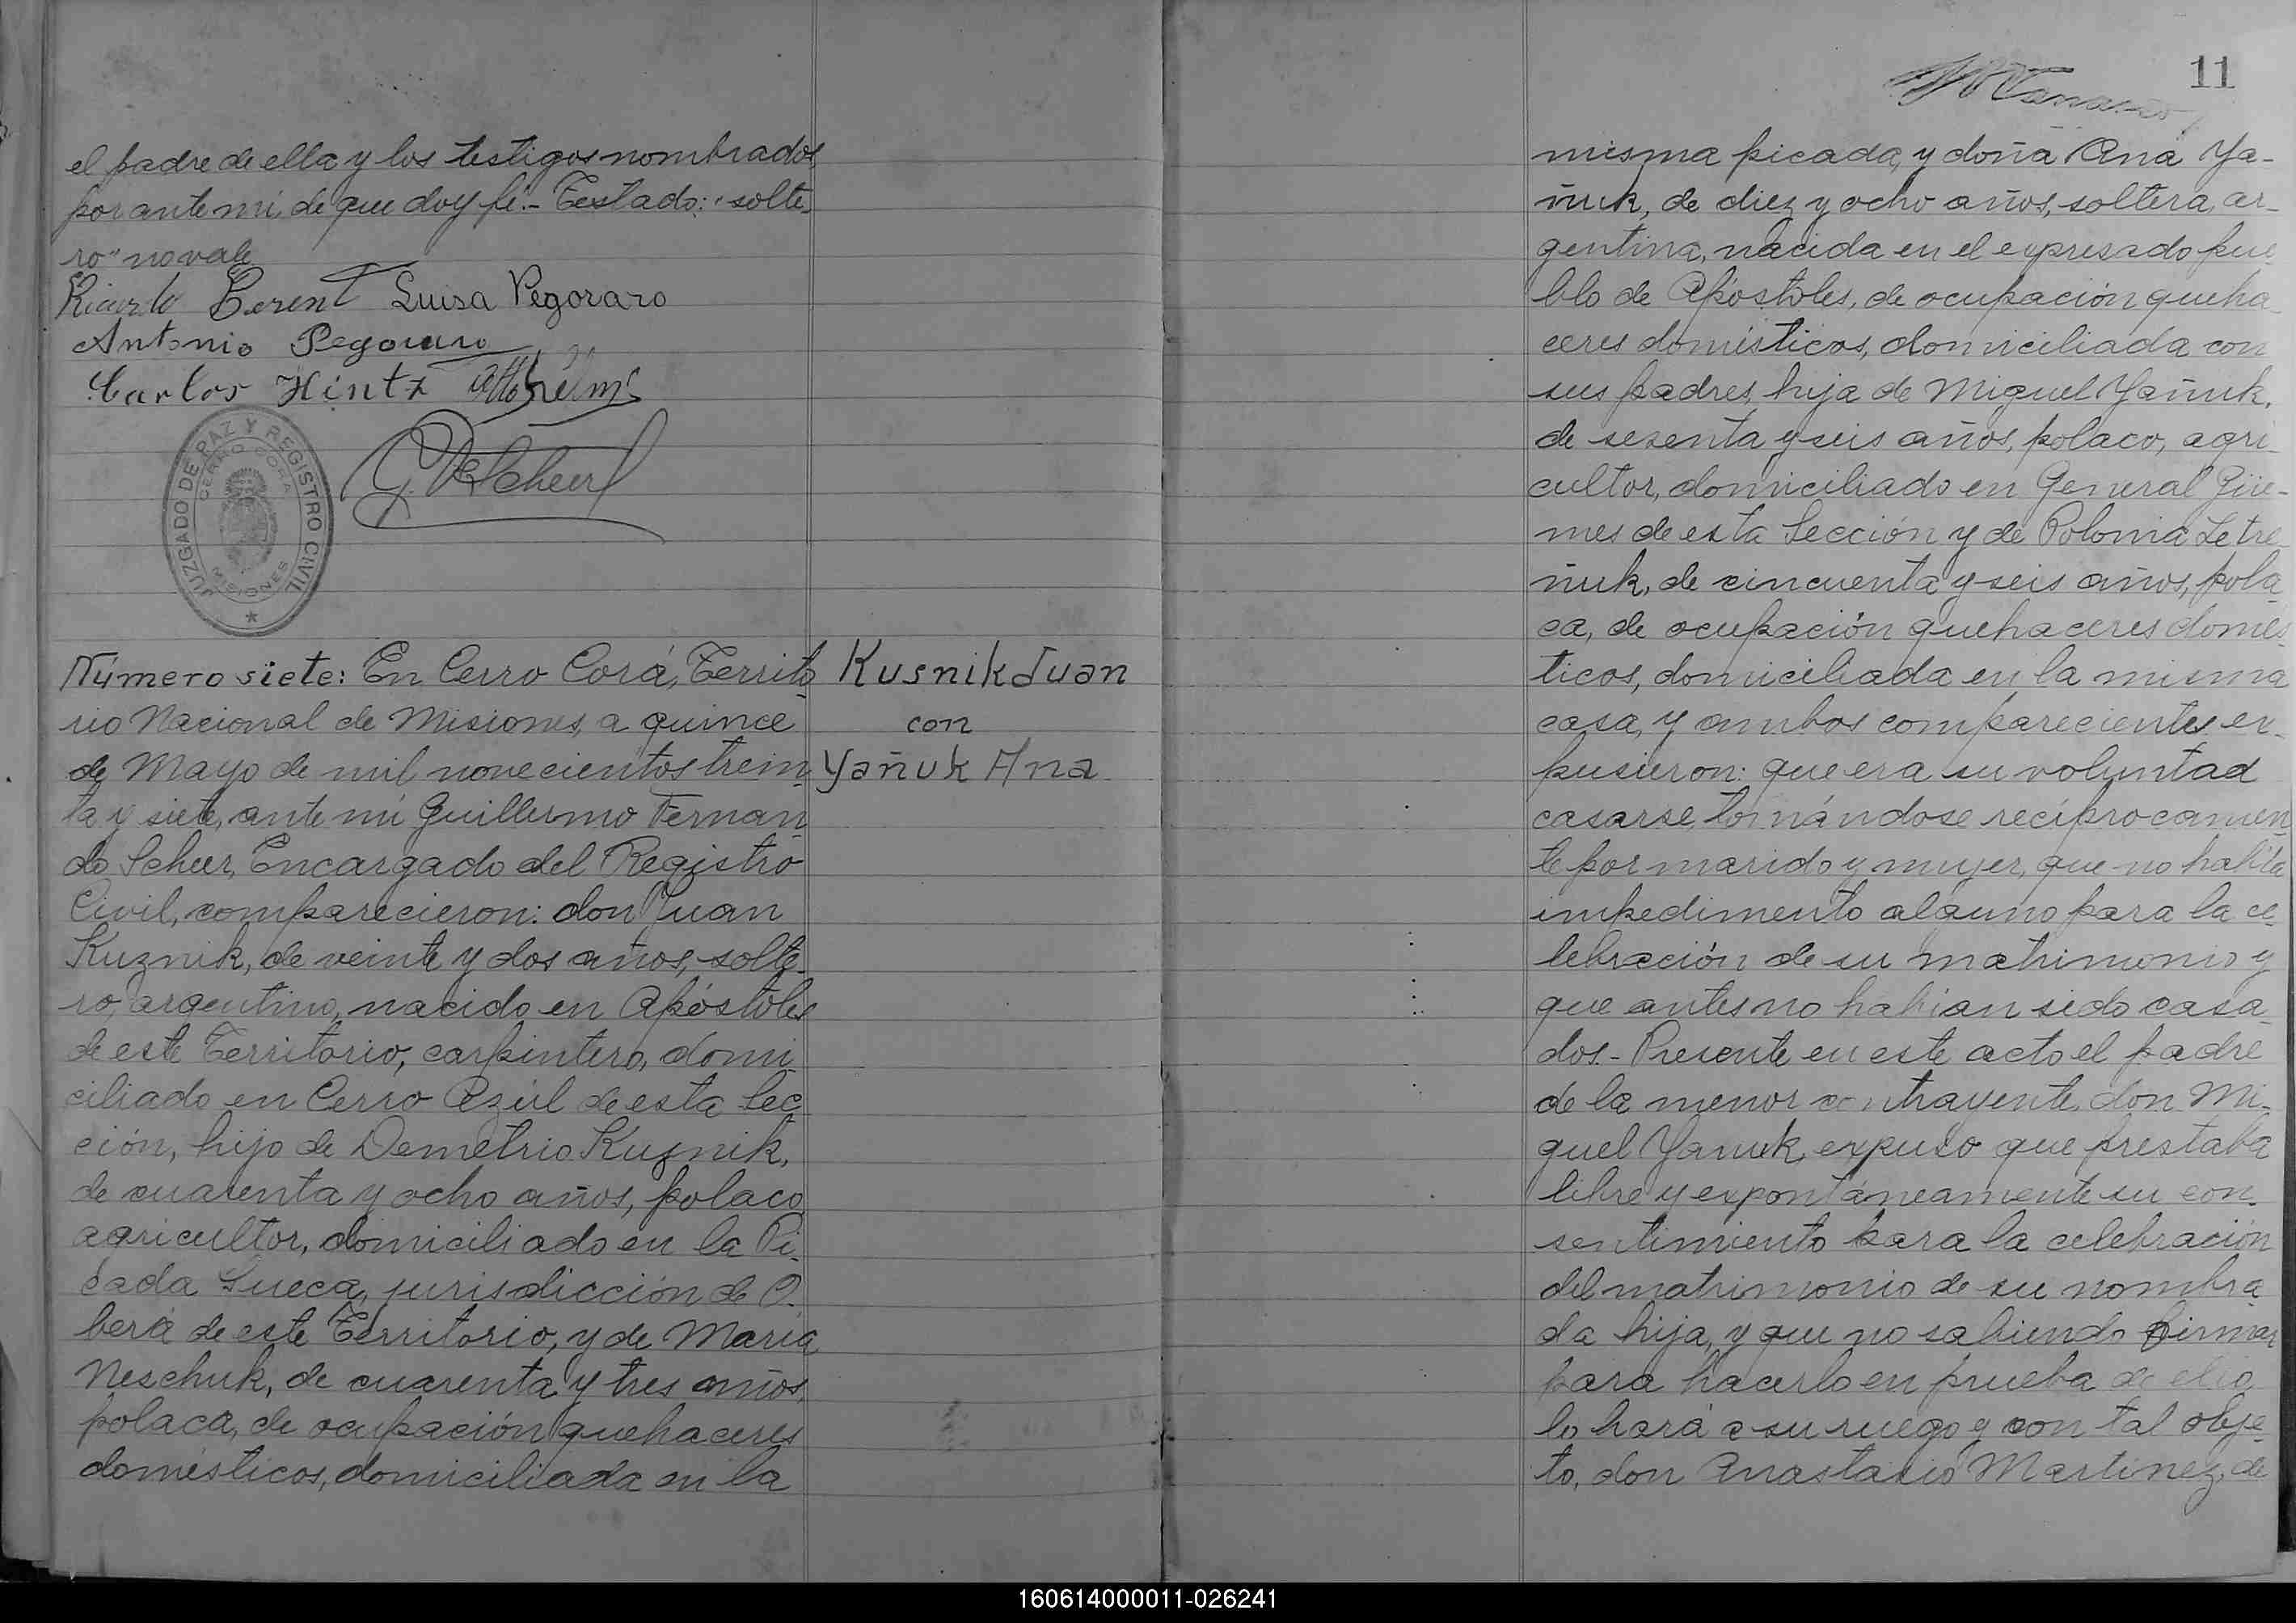 el padre de ella y los testigos nombrados
por ante mi, de que doy fé.- Testado: "solte-
ro" no vale
Ricardo Berent Luisa Pegoraro
Antonio Pegoraro
Carlos Hintz
JUZGADO DE PAZ Y REGISTRO CIVIL
CERRO CORA
MISIONES
G. F. Scheer
Número siete: En Cerro Corá, Territo-
rio Nacional de Misiones, a quince
de Mayo de mil novecientos trein-
ta y siete, ante mi Guillermo Fernan-
do Scheer, Encargado del Registro
Civil, comparecieron: don Juan
Kuznik, de veinte y dos años, solte-
ro, argentino, nacido en Apóstoles
de este Territorio, carpintero, domi-
ciliado en Cerro Azúl de esta Sec-
ción, hijo de Demetrio Kuznik,
de cuarenta y ocho años, polaco,
agricultor, domiciliado en la Pi-
cada Sueca, jurisdicción de O-
berá de este Territorio, y de María
Neschuk, de cuarenta y tres años,
polaca, de ocupación quehaceres
domésticos, domiciliada en la
Kusnik Juan
con
Yañuk Ana
11
misma picada, y doña Ana Ya-
ñuk, de diez y ocho años, soltera, ar-
gentina, nacida en el expresado pue-
blo de Apóstoles, de ocupación queha-
ceres domésticos, domiciliada con
sus padres, hija de Miguel Yañuk,
de sesenta y seis años, polaco, agri-
cultor, domiciliado en General Güe-
mes de esta Sección y de Polonia Letre-
ñuk, de cincuenta y seis años, pola-
ca, de ocupación quehaceres domés-
ticos, domiciliada en la misma
casa, y ambos comparecientes ex-
pusieron: que era su voluntad
casarse tornándose recíprocamen-
te por marido y mujer, que no había
impedimento alguno para la ce-
lebración de su matrimonio y
que antes no habian sido casa-
dos.- Presente en este acto el padre
de la menor contrayente, don Mi-
guel Yanuk, expuso que prestaba
libre y expontáneamente su con-
sentimiento para la celebración
del matrimonio de su nombra-
da hija, y que no sabiendo firmar
para hacerlo en prueba de ello
lo hará a su ruego y con tal obje-
to, don Anastasio Martinez, de
160614000011-026241